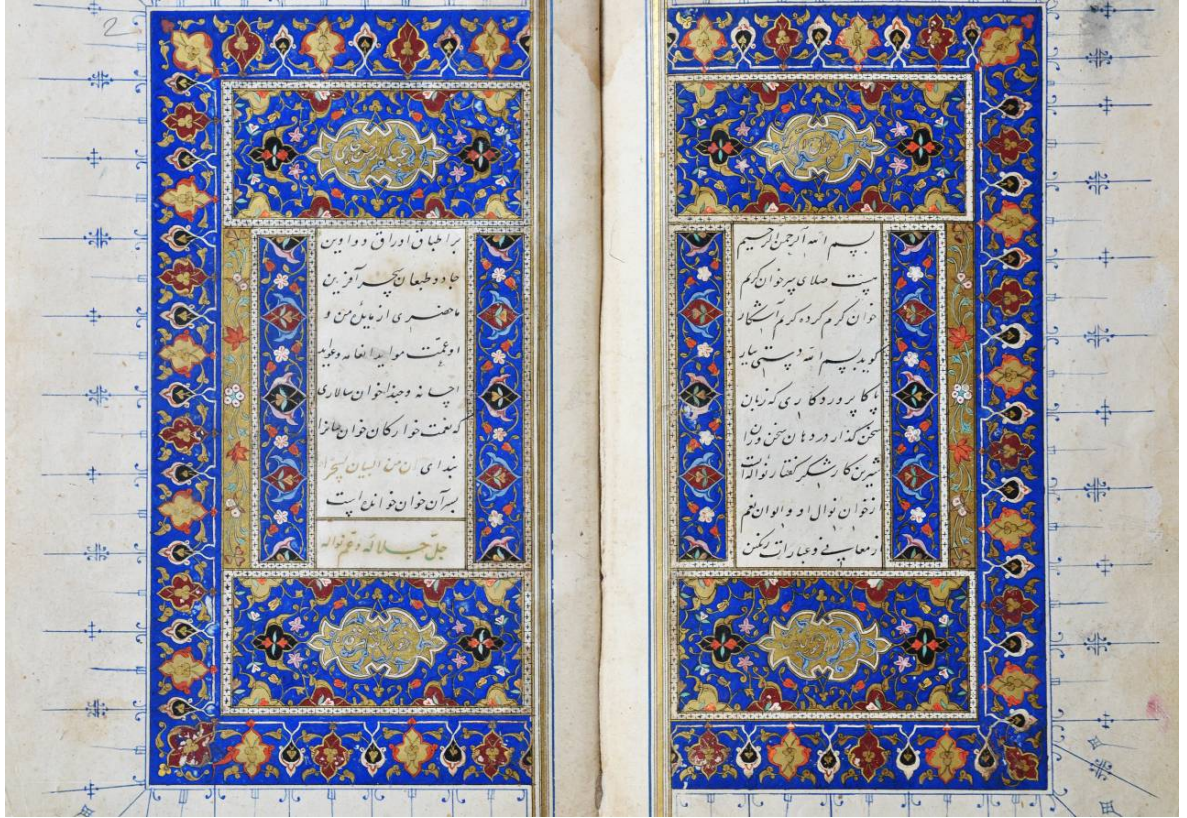 بسم الله الرحمن الرحیم
هست صلای سر خوان کریم
خوان کرم کرده کریم آشکار
کوید بسم الله دستی بیار
پاکا پروردکاری که زبان
سخن کذار در دهان سخن وران
شیرین کار شکر کفتار نواله ایست
از خوان نوال او و الوان نعم
از معانی و عبارات رنکین
2
عبدالرحمن جامی
بر اطباق اوراق دواوین
جادو طبعان سحر آفرین
ماحضری از مایده من و
او عمت مواید انعامه و عواید
احسانه و حبذا خوان سالاری
که نعمت خوارکان خوان
بندای ان من البیان لسحرا
بسر آن خوان خوانده است
جل جلاله و عم نواله